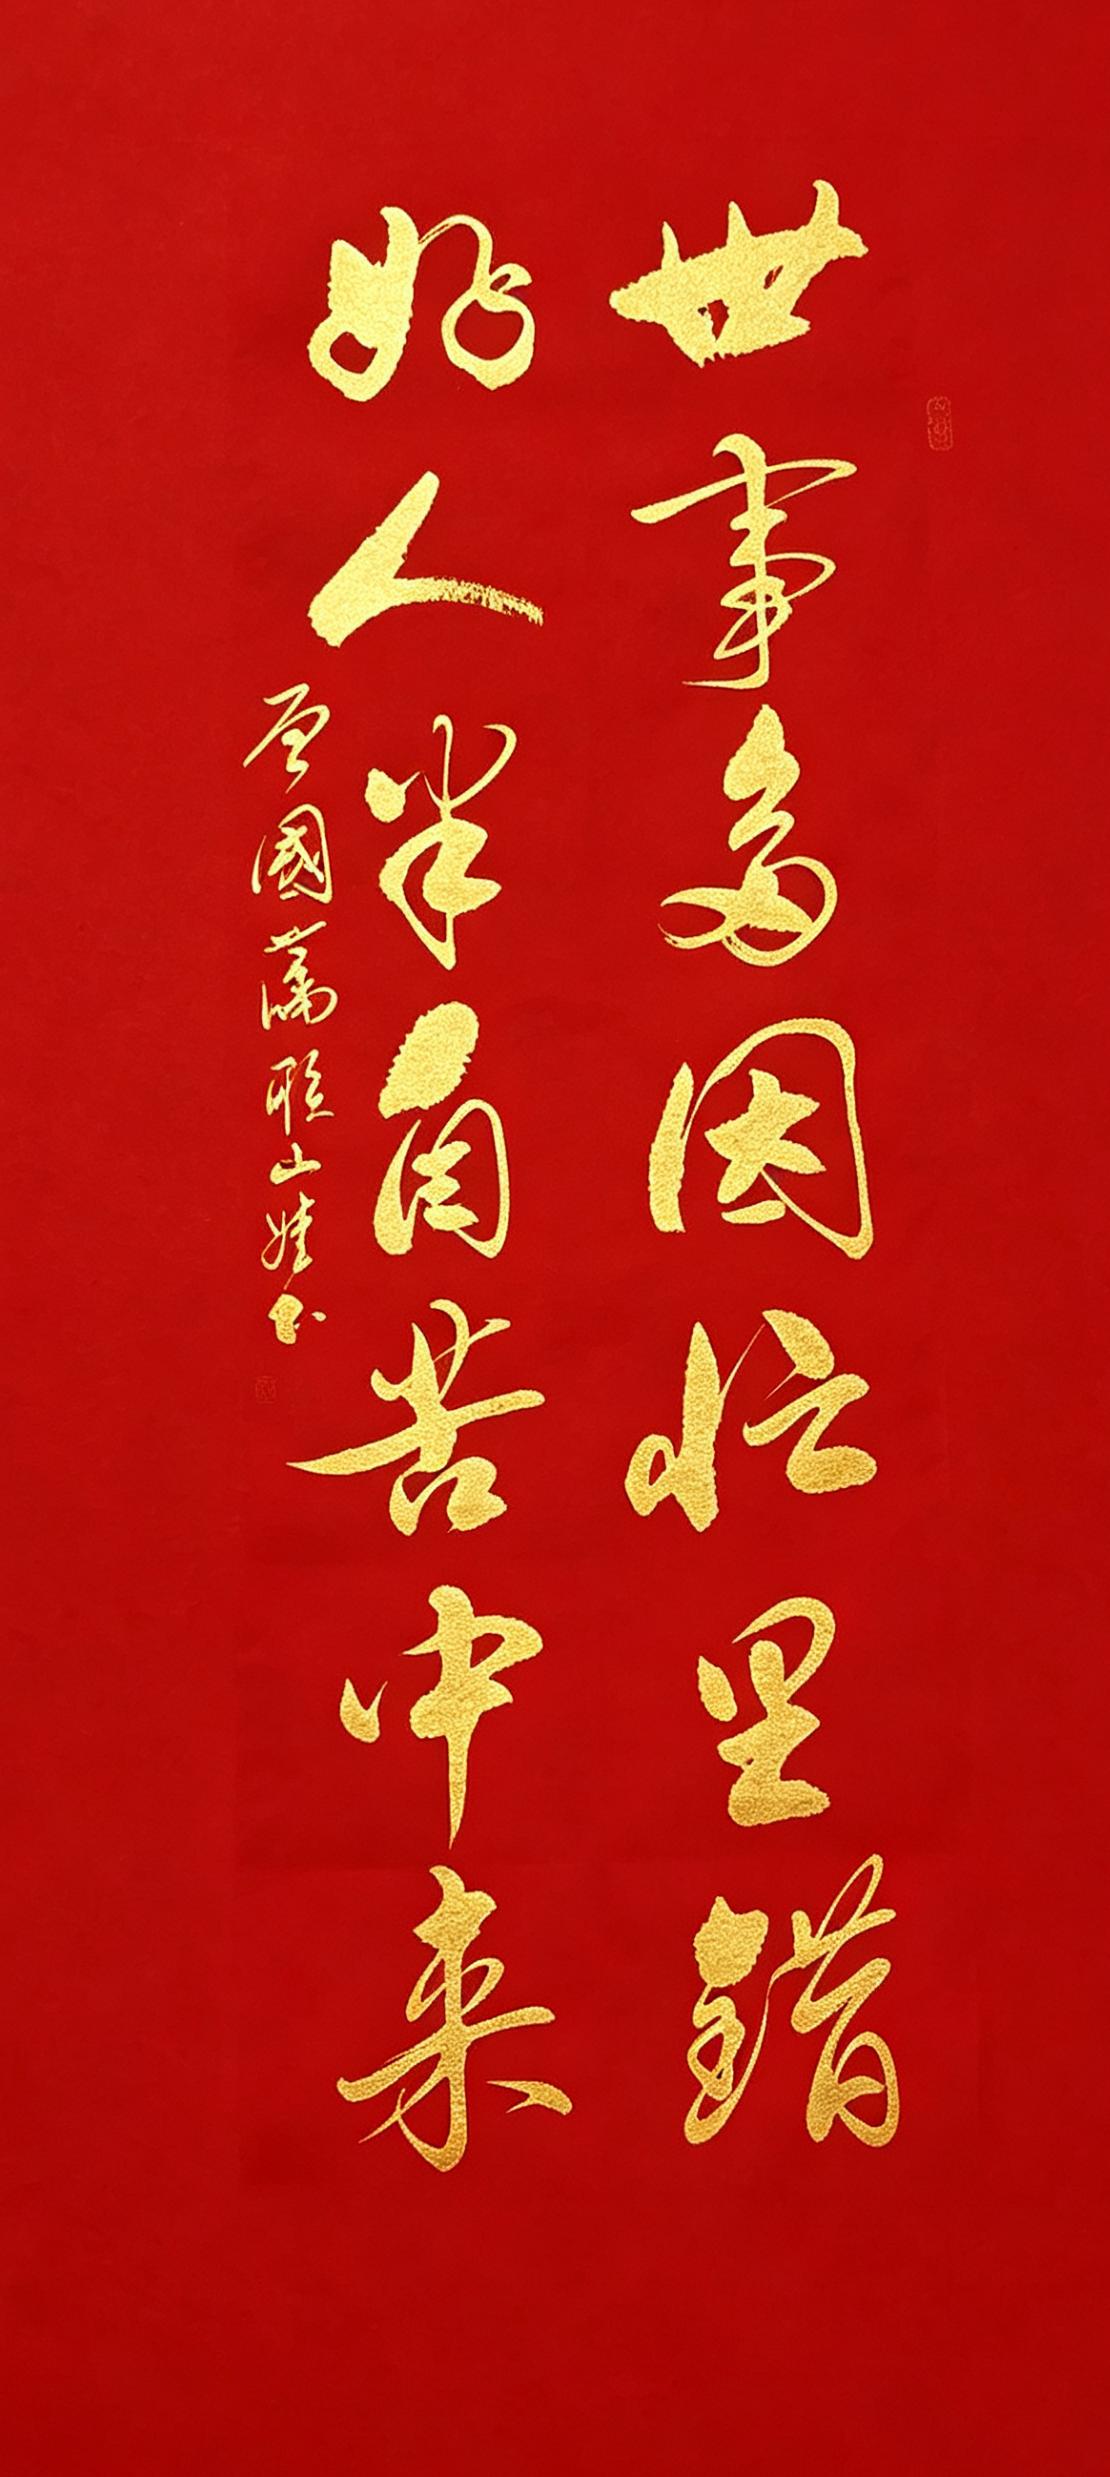 世事多因忙里错
好人半自苦中来
曾国藩联山娃书